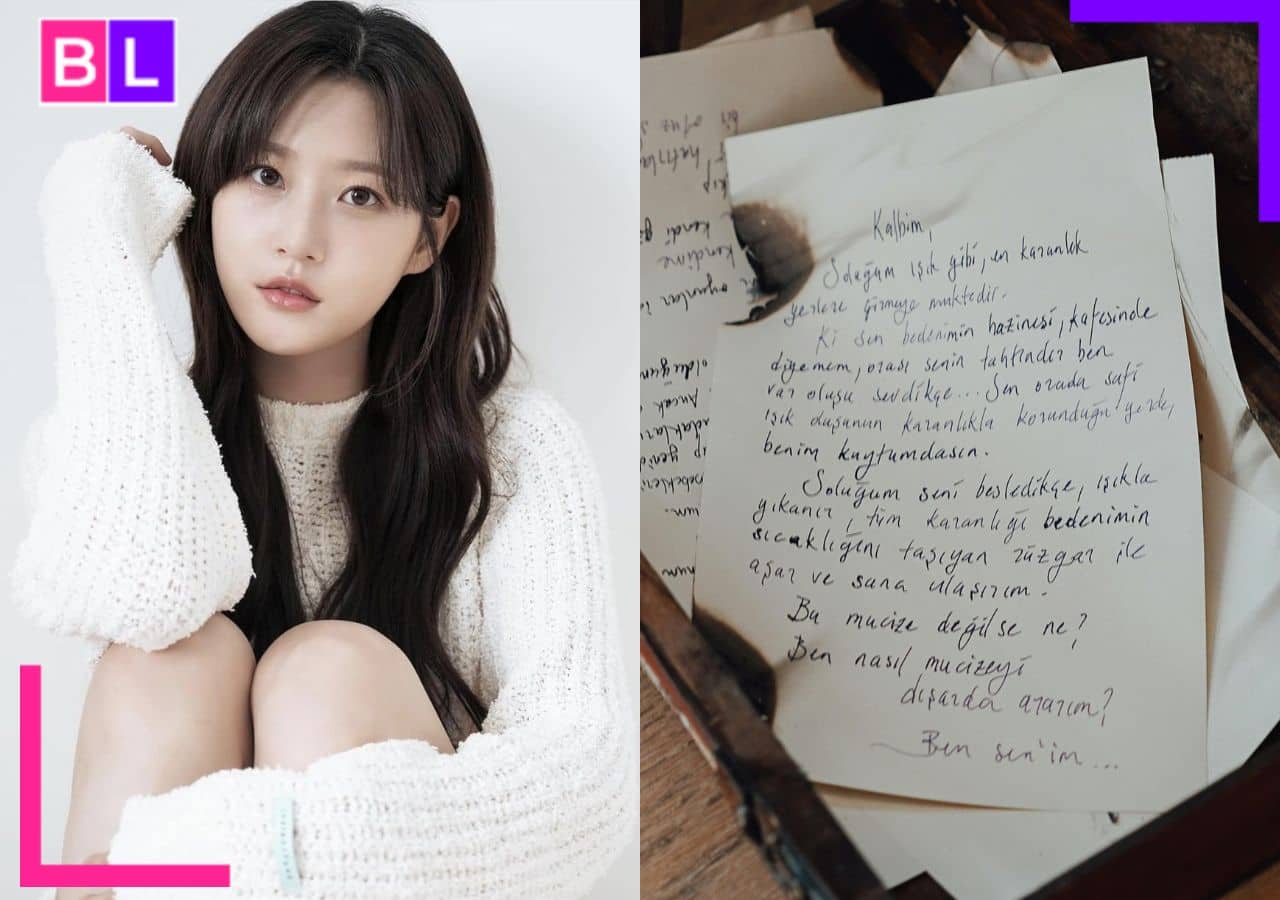 BL
Kalbim,
Soluğum ışık gibi, en karanlık
yerlere girmeye muktedir.
Ki sen bedenimin hazinesi, kafesinde
diyemem, orası senin tahtındır ben
var oluşu sevdikçe... Sen orada safi
ışık duşunun karanlıkla korunduğu yerde,
benim kuytumdasın.
Soluğum seni besledikçe, ışıkla
yıkanır, tüm karanlığı bedenimin
sıcaklığını taşıyan rüzgar ile
aşar ve sana ulaşırım.
Bu mucize değilse ne?
Ben nasıl mucizeyi
dışarda ararım?
Ben sen'im...
bir
hatırla
kendi
kendime
oyunları
olduğun
Ancak